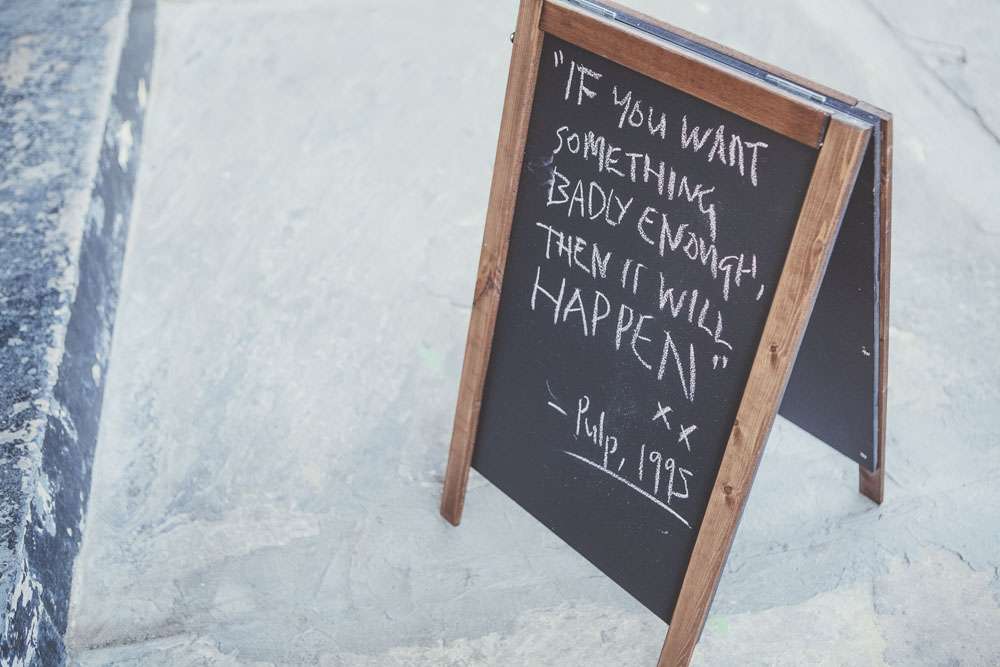 "IF YOU WANT
SOMETHING
BADLY ENOUGH,
THEN IT WILL
HAPPEN"
xx
– Pulp, 1995